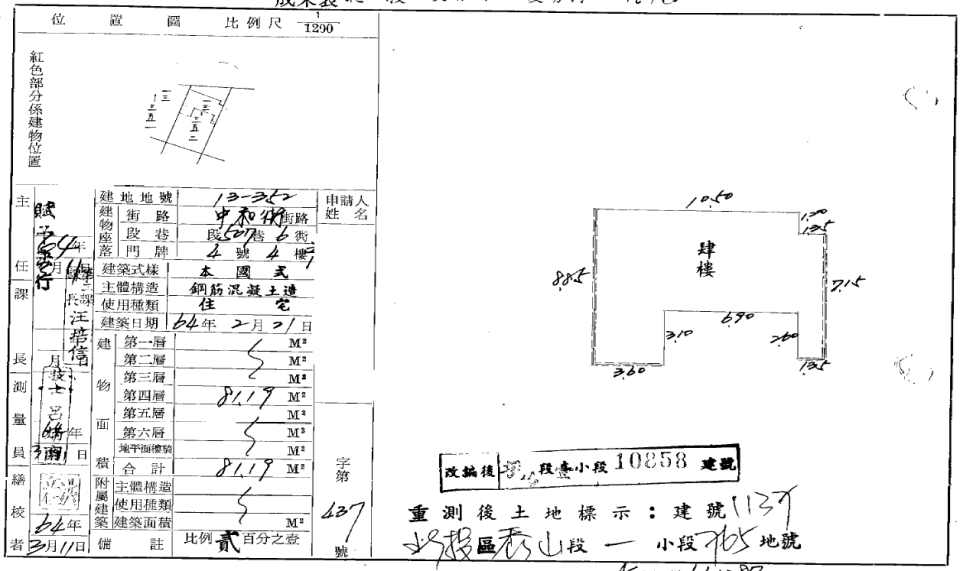 位置圖 比例尺 1/1290
紅色部分係建物位置
建物座落
建地地號 13-352
街路 中和街街路
段巷 段507巷6街
門牌 4號4樓
申請人姓名
建築式樣 本國式
主體構造 鋼筋混凝土造
使用種類 住宅
建築日期 64年2月21日
建物面積
第一層 M²
第二層 M²
第三層 M²
第四層 81.19 M²
第五層 M²
第六層 M²
地平面騎樓 M²
合計 81.19 M²
附屬建築
主體構造
使用種類
建築面積 M²
備註 比例貳百分之壹
字第437號
主任課長
測量員
繕校者
64年3月11日
汪培信
10.50
1.35
8.85
肆樓
7.15
6.90
3.10
2.60
3.60
1.35
改編後 段壹小段 10858 建號
重測後土地標示：建號1137
北投區秀山段一小段765地號